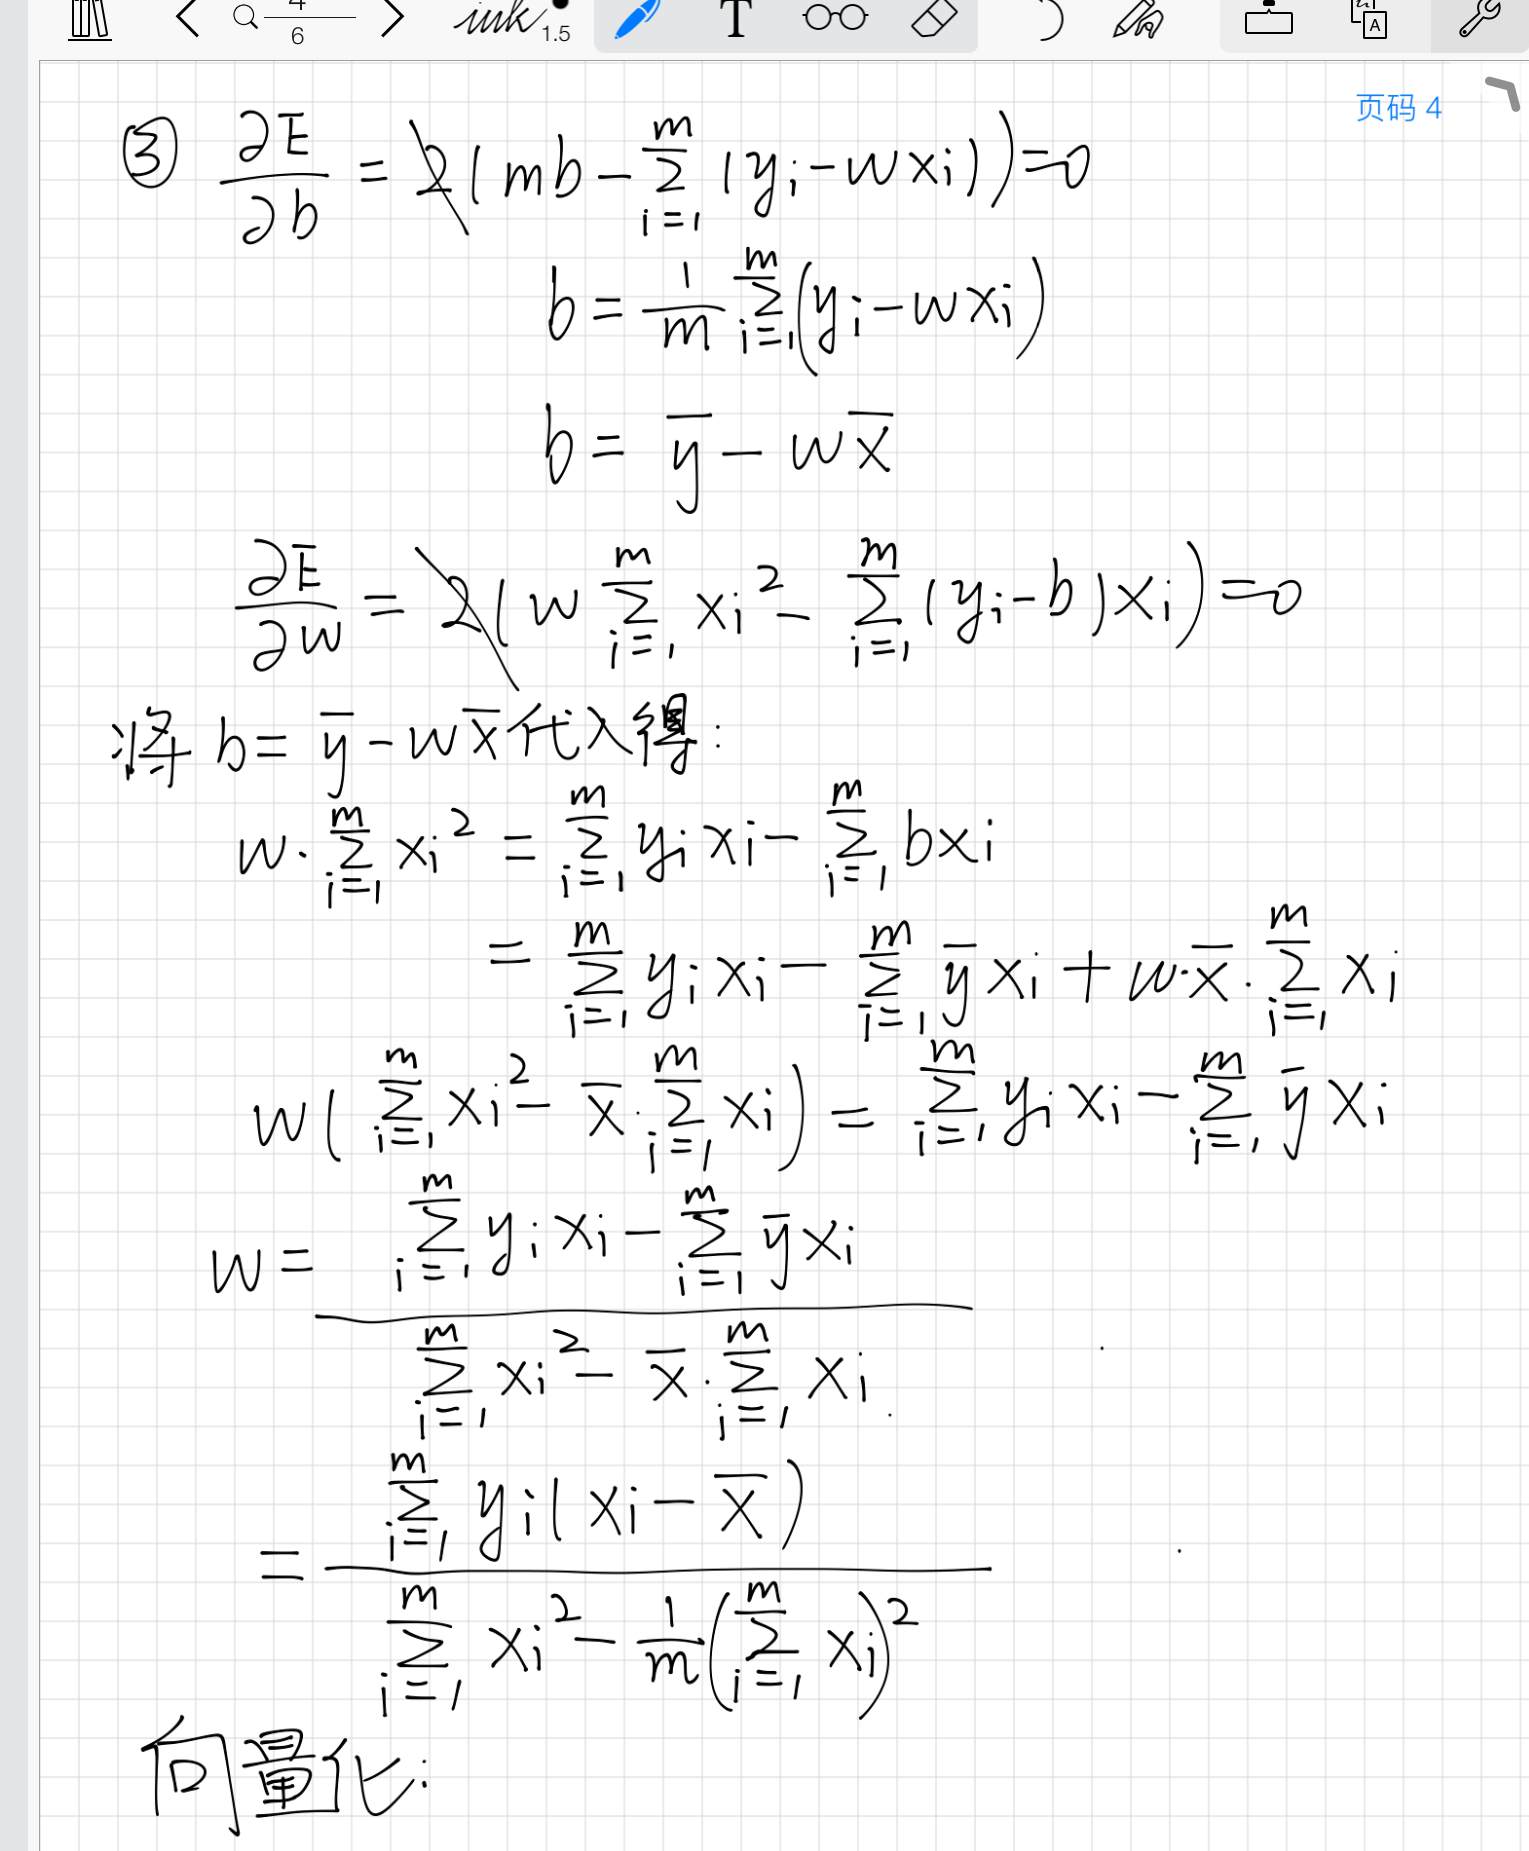 4
6
ink 1.5 T A
页码 4
③ ∂E/∂b = 2(mb - ∑_{i=1}^{m} (yi - wxi)) = 0
b = 1/m ∑_{i=1}^{m} (yi - wxi)
b = y̅ - wx̅
∂E/∂w = 2(w ∑_{i=1}^{m} xi² - ∑_{i=1}^{m} (yi - b)xi) = 0
将 b = y̅ - wx̅ 代入得:
w · ∑_{i=1}^{m} xi² = ∑_{i=1}^{m} yi xi - ∑_{i=1}^{m} bxi
= ∑_{i=1}^{m} yi xi - ∑_{i=1}^{m} y̅ xi + w · x̅ · ∑_{i=1}^{m} xi
w( ∑_{i=1}^{m} xi² - x̅ · ∑_{i=1}^{m} xi ) = ∑_{i=1}^{m} yi xi - ∑_{i=1}^{m} y̅ xi
w = (∑_{i=1}^{m} yi xi - ∑_{i=1}^{m} y̅ xi) / (∑_{i=1}^{m} xi² - x̅ · ∑_{i=1}^{m} xi)
= (∑_{i=1}^{m} yi(xi - x̅)) / (∑_{i=1}^{m} xi² - 1/m (∑_{i=1}^{m} xi)²)
向量化: